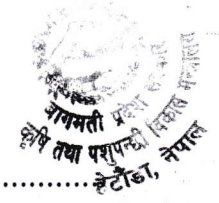 बागमती प्रदेश
कृषि तथा पशुपन्छी विकास
..................हेटौंडा, नेपाल